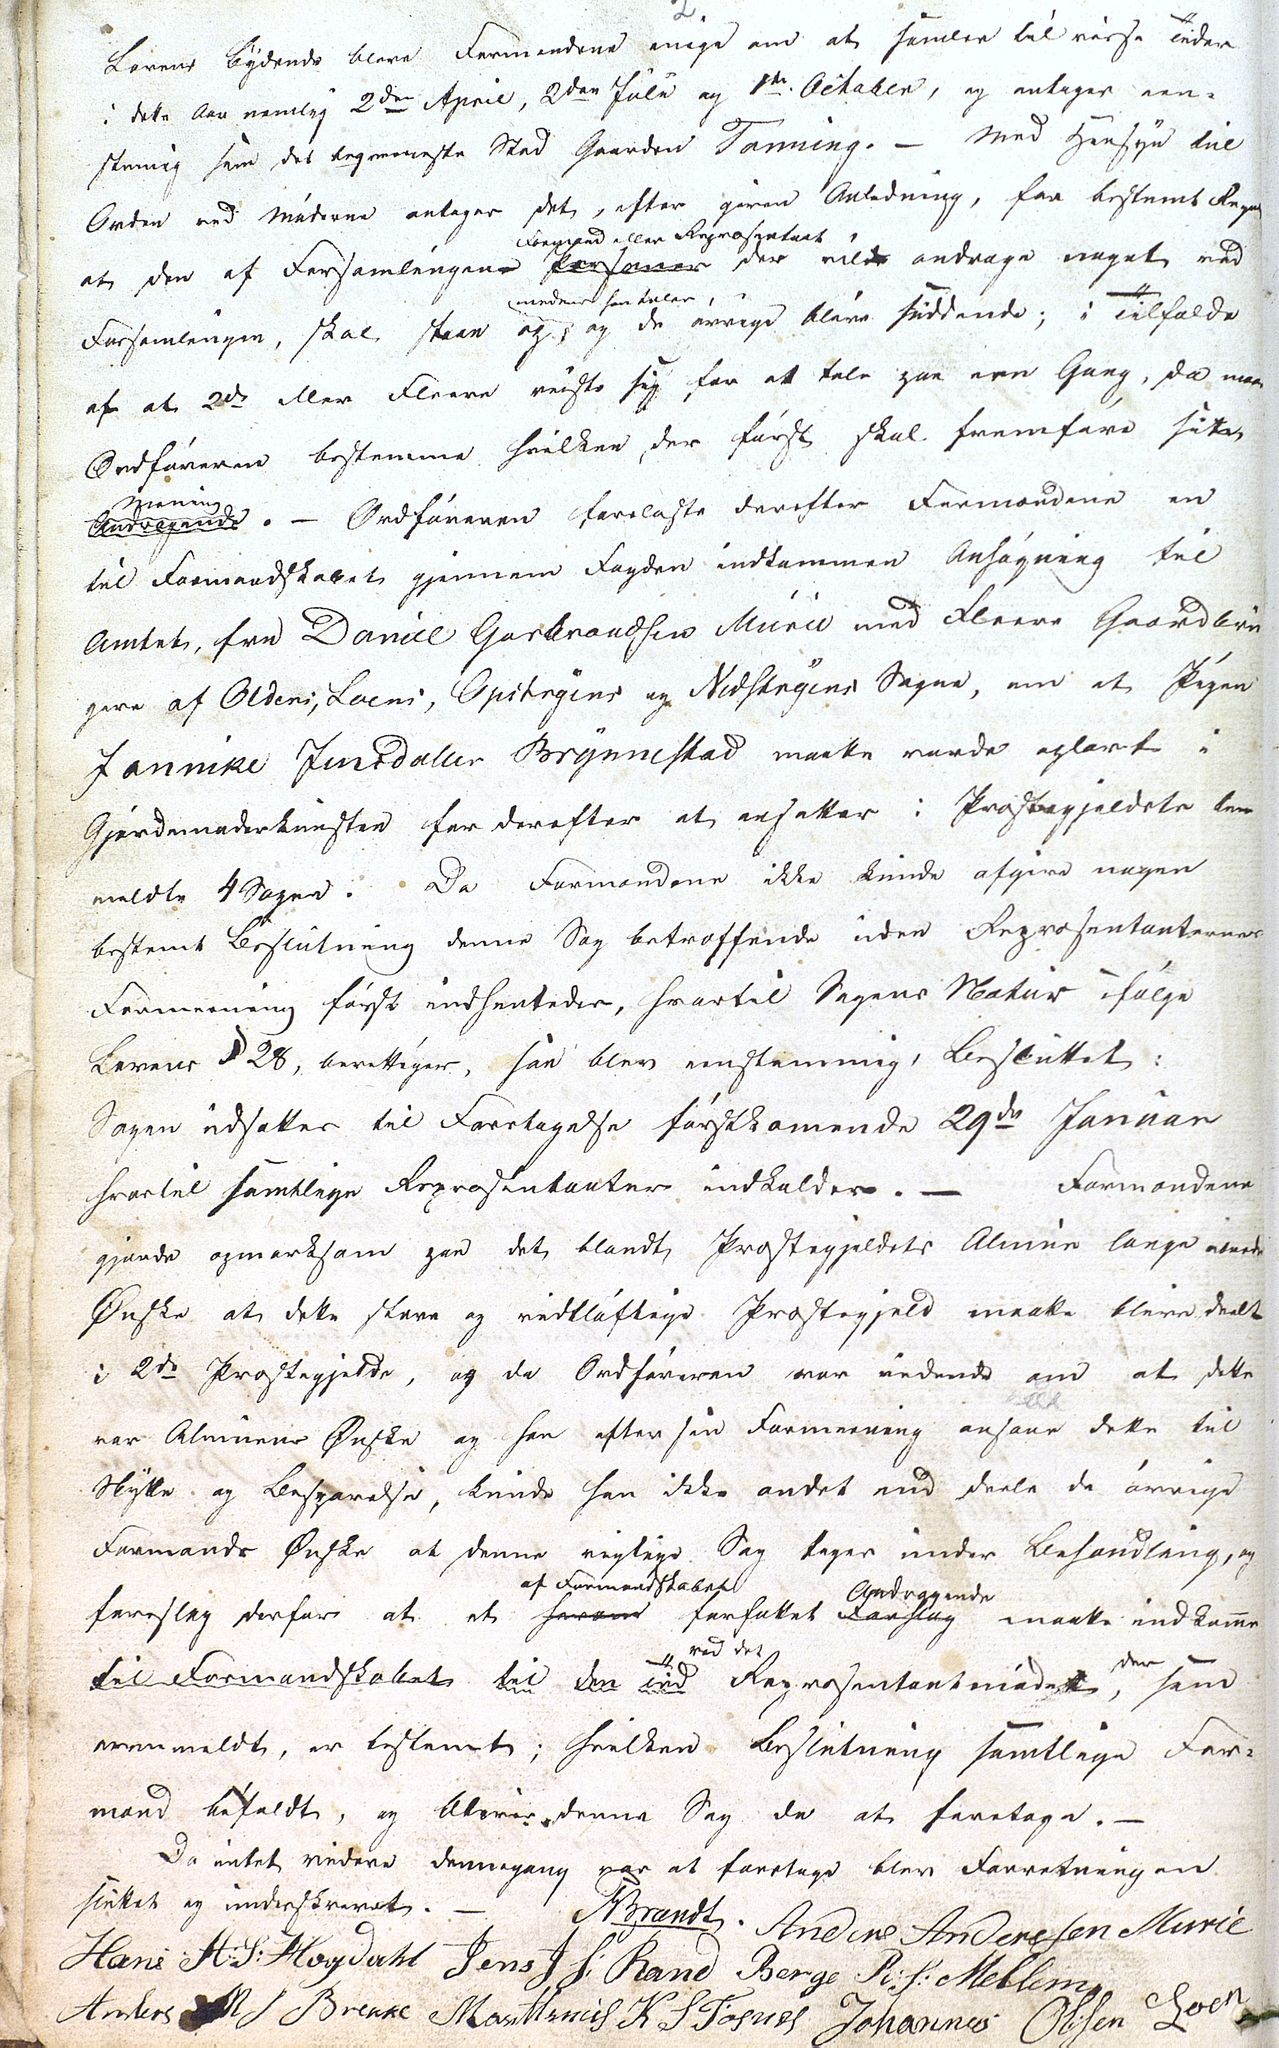 2
Lovens Bydende bleve Formændene enige om at samles til visse Tider
i dette Aar nemlig 2den April, 2den Julii og 1ste October, og antages een-
stemmig som det beqvemmeste Sted Gaarden Tonning. — Med Hensyn til
Orden ved Møderne antages det, efter given Anledning, for bestemt Regel
at den af Forsamlingens Personer der vilde andrage noget ved
Formand eller Repræsentant
Forsamlingen, skal staae op, og de øvrige blive siddende; i Tilfælde
medens han taler,
af at 2de eller Fleere reiste sig for at tale paa een Gang, da maa
Ordføreren bestemme hvilken, der først skal fremføre sit
Mening
Andragende. — Ordføreren foreløste derefter Formændene en
til Formandskabet gjennem Fogden indkommen Ansøgning til
Amtet, fra Daniel Gastbrandsen Murie med Fleere Gaardbru
gere af Oldens, Loens, Opstryens og Nedstryens Sogne, om at Pigen
Jannike Jensdatter Brynnestad maatte vorde oplært i
Gjordemoderkunsten for derefter at ansættes i Præstegjeldets be
meldte 4 Sogne. Da Formændene ikke kunde afgive nogen
bestemt Beslutning denne Sag betræffende uden Repræsentanternes
Formeening først indhentedes, hvortil Sagens Natur ifølge
Lovens § 28, berettiger, saa blev eenstemmig Besluttet:
Sagen udsættes til Foretagelse førstkomende 29de Januar
hvortil samtlige Repræsentanter indkaldes. — Formændene
gjorde opmærksom paa det blandt Præstegjeldets Almue længe nærede
Ønske at dette store og vidtløftige Præstegjeld maatte blive deelt
i 2de Præstegjelde, og da Ordføreren var vidende om at dette
var Almuens Ønske og han efter sin Formeening ansaae dette til
Nytte og Besparelse, kunde han ikke andet end deele de øvrige
Formænds Ønske at denne vigtige Sag tages under Behandling, og
af Formandskabet Andragende
foreslog derfor at et herom forfattet Forslag maatte indkomme
ved det
til Formandskabet til den Tid Repræsentantmøde, der, som
ovenmeldt, er bestemt; hvilken Beslutning samtlige For-
mænd bifaldt, og bliver denne Sag da at foretage. —
Da intet videre dennegang var at foretage blev Forretningen
sluttet og underskrevet. —
NBrandt. Anders Andersen Murie
Hans A: S: Mogdahl Jens J S: Rand Berge R: S: Meklem
Anders R S Brekke Matthias K S Tosnes Johannes Olsen Loen